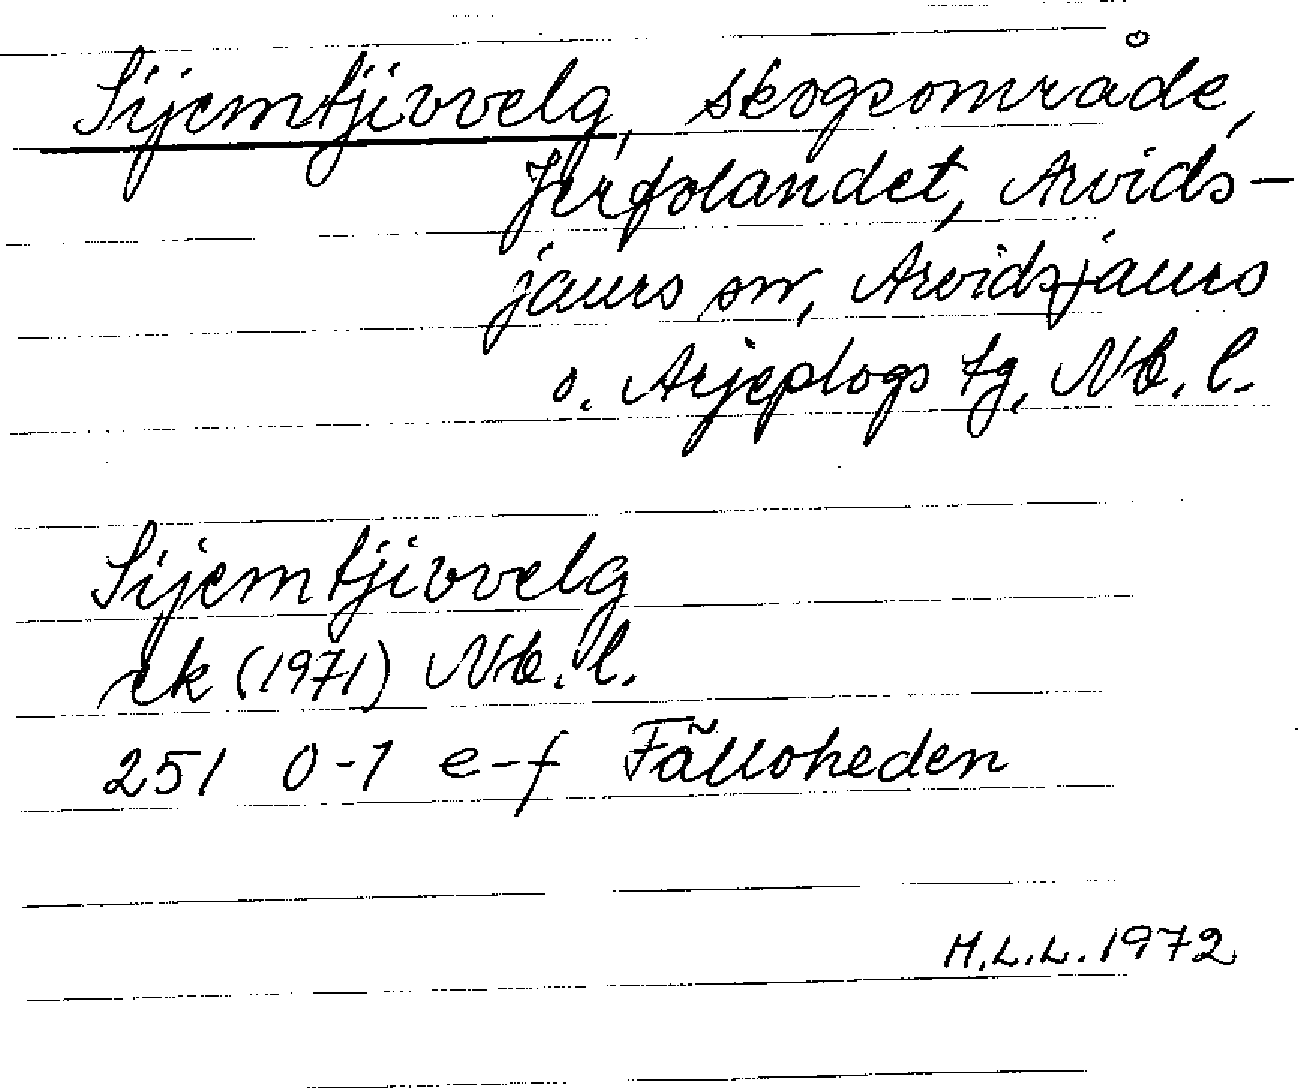 Sijemtjivvelg, skogsområde,
Jerfolandet, Arvids-
jaurs sn, Arvidsjaurs
o. Arjeplogs tg, Nb. l.
Sijemtjivvelg
ek (1971) Nb. l.
251 0-1 e-f Fälloheden
H.L.L. 1972